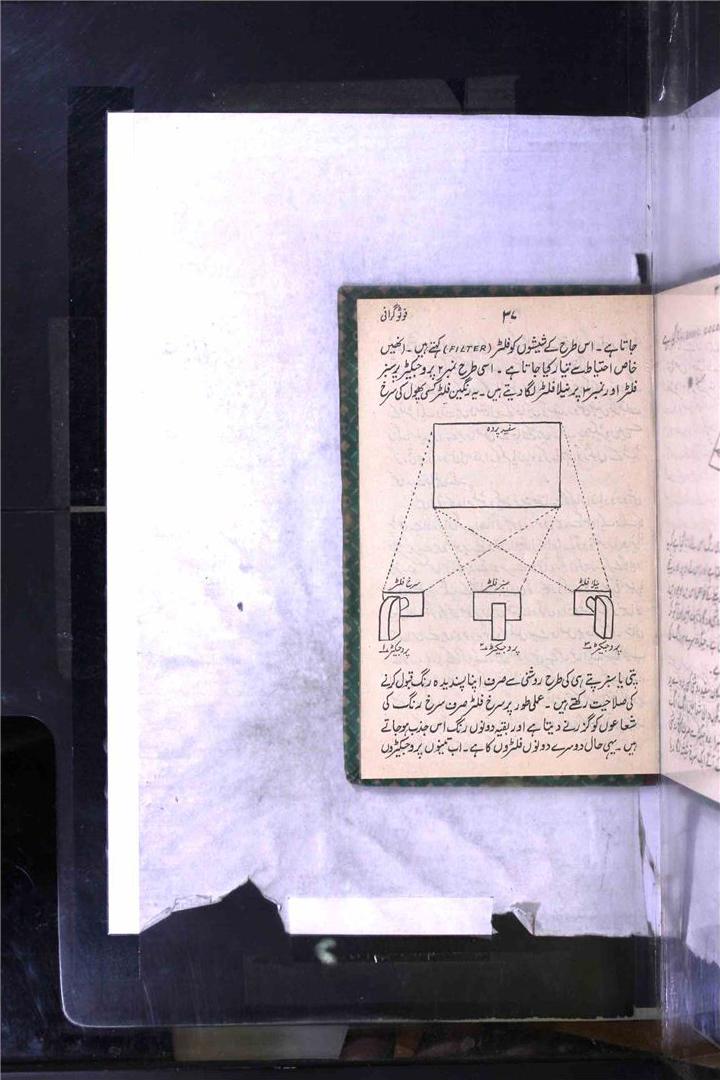 ۳۷
فوٹوگرافی
جاتا ہے ۔ اس طرح کے شیشوں کو فلٹر (FILTER) کہتے ہیں ۔ انھیں
خاص احتیاط سے تیار کیا جاتا ہے ۔ اسی طرح نمبر ۲ پروجیکٹر پر سبز
فلٹر اور نمبر ۳ پر نیلا فلٹر لگا دیتے ہیں ۔ یہ رنگین فلٹر کسی پھول کی سرخ
سفید پردہ
نیلا فلٹر
سبز فلٹر
سرخ فلٹر
پروجیکٹر ۳
پروجیکٹر ۲
پروجیکٹر ۱
پتی یا سبز پتے ہی کی طرح روشنی سے صرف اپنا پسندیدہ رنگ قبول کرنے
کی صلاحیت رکھتے ہیں ۔ عملی طور پر سرخ فلٹر صرف سرخ رنگ کی
شعاعوں کو گزرنے دیتا ہے اور بقیہ دونوں رنگ اس جذب ہو جاتے
ہیں ۔ یہی حال دوسرے دونوں فلٹروں کا ہے ۔ اب تینوں پروجیکٹروں